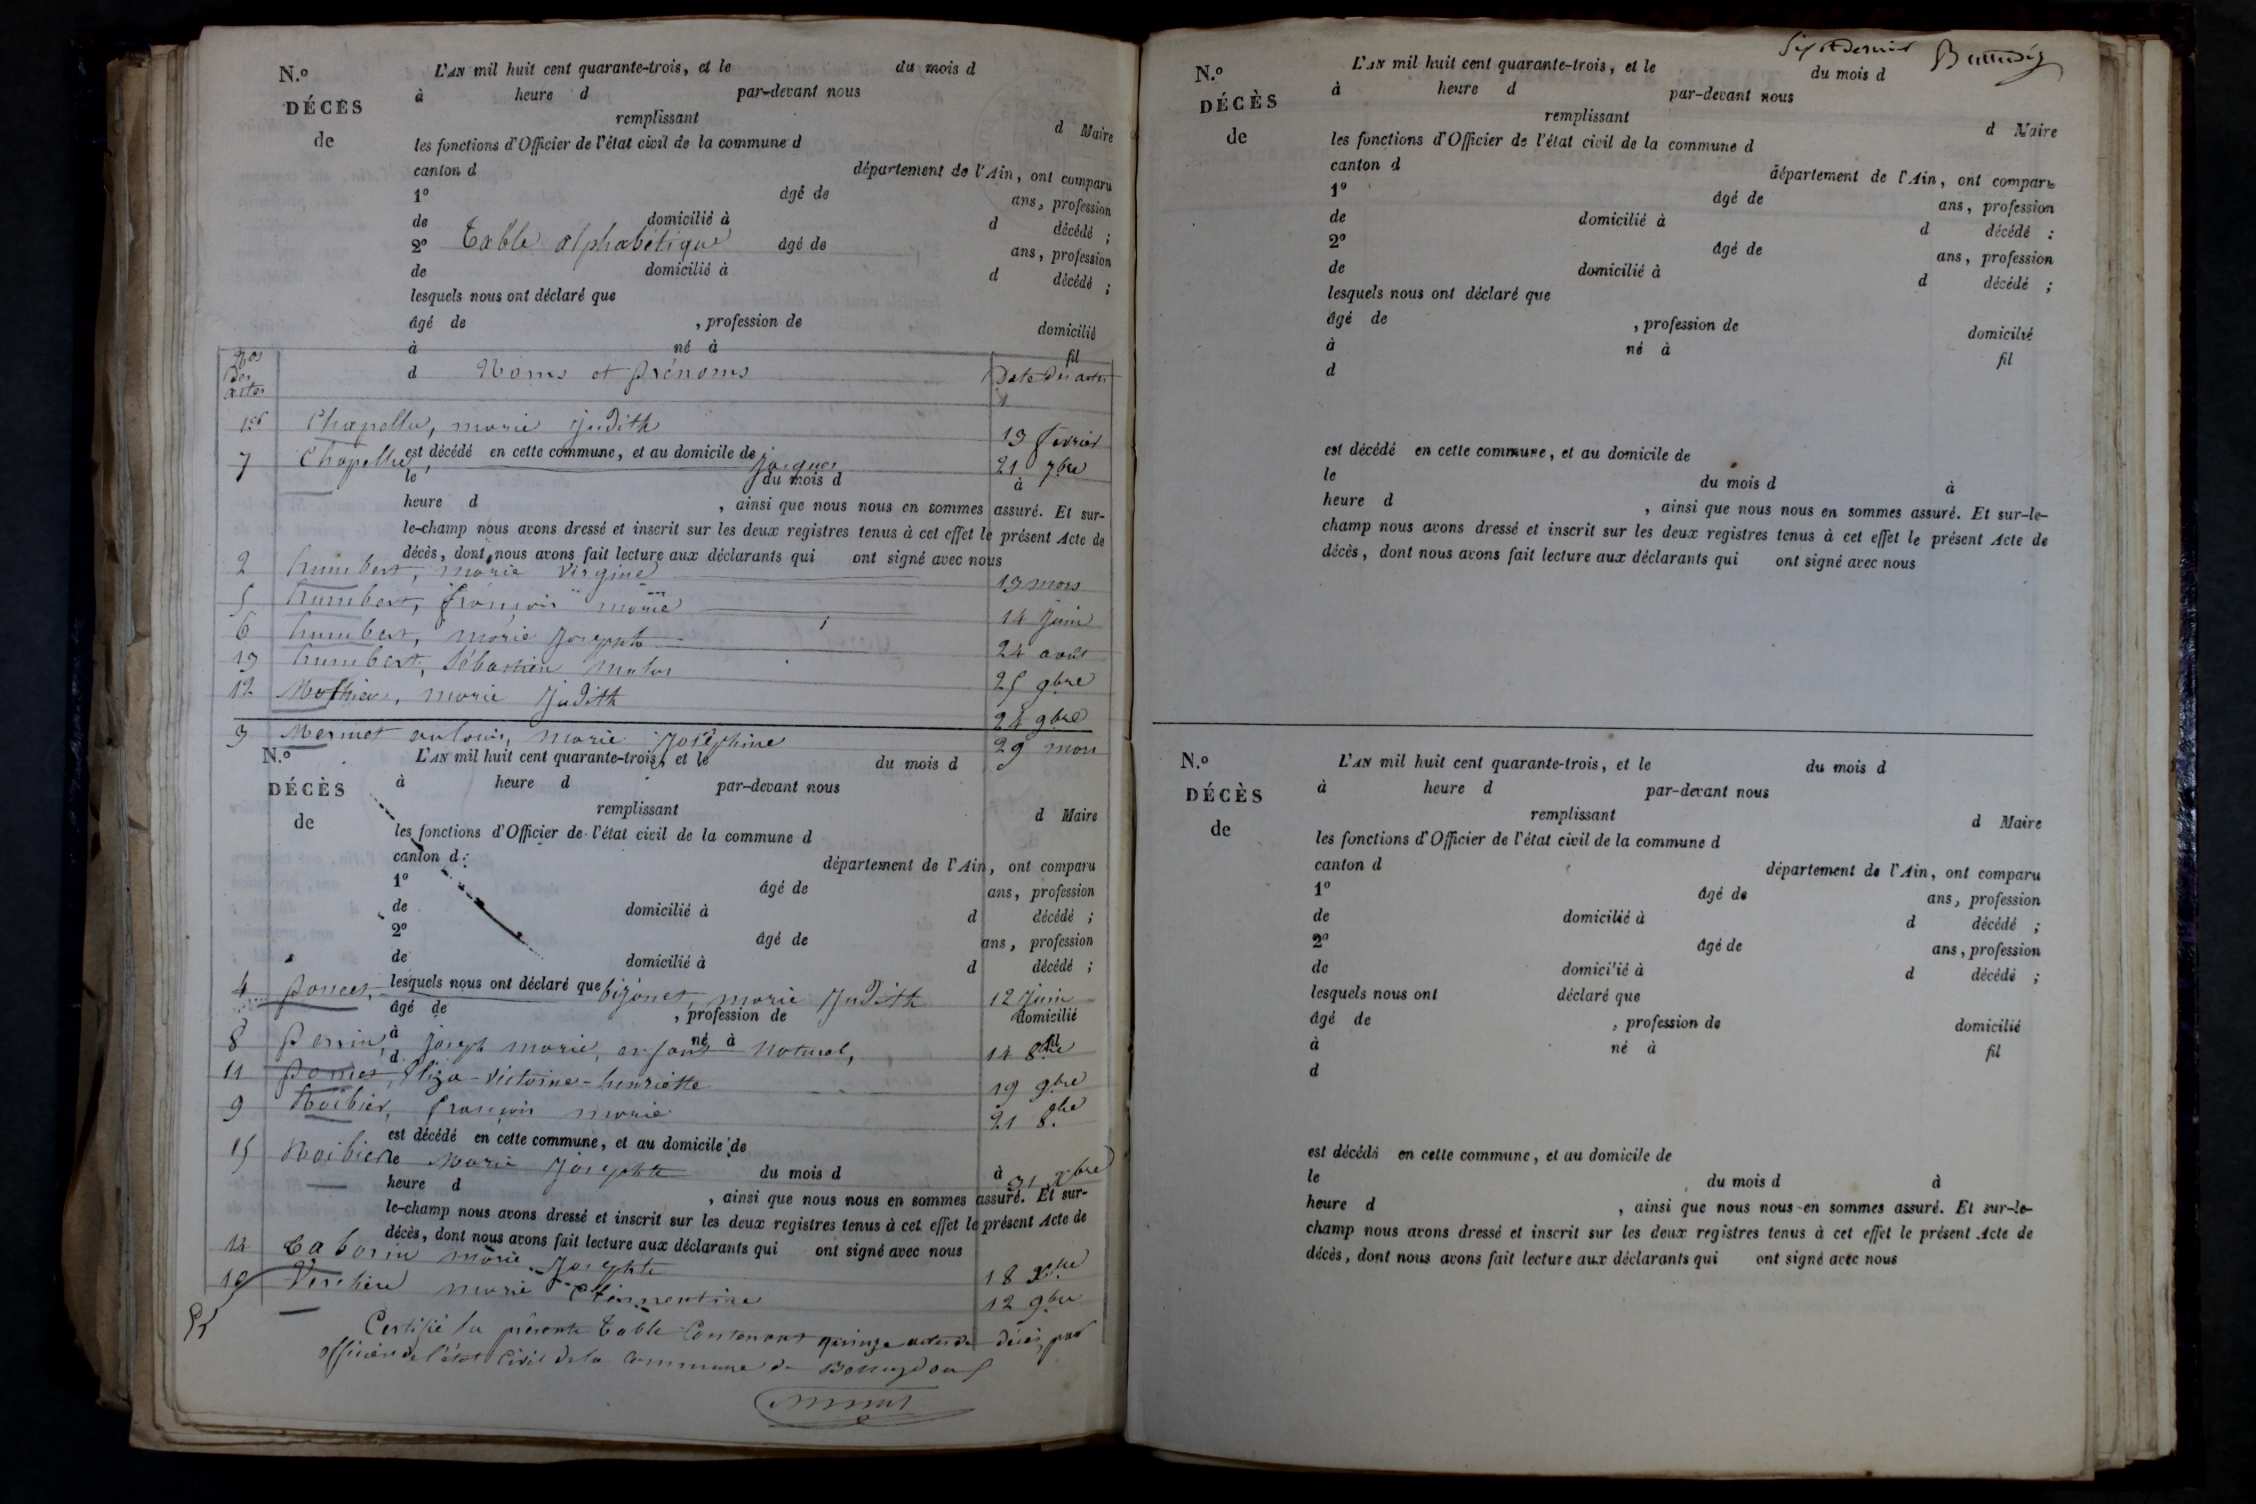 N.º
DÉCÈS
de
L'AN mil huit cent quarante-trois, et le du mois d
à heure d par-devant nous
remplissant d Maire
les fonctions d'Officier de l'état civil de la commune d
canton d département de l'Ain, ont comparu
1º âgé de ans, profession
de domicilié à d décédé ;
2º Table alphabétique âgé de ans, profession
de domicilié à d décédé ;
lesquels nous ont déclaré que
âgé de , profession de domicilié
à né à fil
d
Nos des actes Noms et prénoms Date des actes
1er Chapellu, marie Judith 13 fevrier
est décédé en cette commune, et au domicile de
7 Chapellu, Jacques 21 7bre
le du mois d à
heure d , ainsi que nous nous en sommes assuré. Et sur-
le-champ nous avons dressé et inscrit sur les deux registres tenus à cet effet le présent Acte de
décès, dont nous avons fait lecture aux déclarants qui ont signé avec nous
2 humbert, marie virginie 13 mars
5 humbert, françois marie 14 Juin
6 humbert, marie Josephte 24 août
13 humbert, Sébastien 25 9bre
12 Mathieu, marie Judith 24 9bre
3 Mermet marie Joséphine 29 mars
N.º
DÉCÈS
de
L'AN mil huit cent quarante-trois, et le du mois d
à heure d par-devant nous
remplissant d Maire
les fonctions d'Officier de l'état civil de la commune d
canton d département de l'Ain, ont comparu
1º âgé de ans, profession
de domicilié à d décédé ;
2º âgé de ans, profession
de domicilié à d décédé ;
lesquels nous ont déclaré que
4 poncet, marie Judith 12 Juin
âgé de , profession de domicilié
à né à fil
8 perrin, joseph marie, enfant naturel, 14 8bre
d
11 poncet, Eliza-victoine-henriette 19 9bre
9 Roibier, françois marie 21 8bre
est décédé en cette commune, et au domicile de
15 Roibier marie Josephte 31 Xbre
le du mois d à
heure d , ainsi que nous nous en sommes assuré. Et sur-
le-champ nous avons dressé et inscrit sur les deux registres tenus à cet effet le présent Acte de
décès, dont nous avons fait lecture aux déclarants qui ont signé avec nous
14 Taborin marie Josephte 18 Xbre
10 Verchère marie Clémentine 12 9bre
Certifié la présente table Contenant quinze actes de décès, par
officier de l'état Civil de la Commune de
Sixt dernier
N.º
DÉCÈS
de
L'AN mil huit cent quarante-trois, et le du mois d
à heure d par-devant nous
remplissant d Maire
les fonctions d'Officier de l'état civil de la commune d
canton d département de l'Ain, ont comparu
1º âgé de ans, profession
de domicilié à d décédé :
2º âgé de ans, profession
de domicilié à d décédé ;
lesquels nous ont déclaré que
âgé de , profession de domicilié
à né à fil
d
est décédé en cette commune, et au domicile de
le du mois d à
heure d , ainsi que nous nous en sommes assuré. Et sur-le-
champ nous avons dressé et inscrit sur les deux registres tenus à cet effet le présent Acte de
décès, dont nous avons fait lecture aux déclarants qui ont signé avec nous
N.º
DÉCÈS
de
L'AN mil huit cent quarante-trois, et le du mois d
à heure d par-devant nous
remplissant d Maire
les fonctions d'Officier de l'état civil de la commune d
canton d département de l'Ain, ont comparu
1º âgé de ans, profession
de domicilié à d décédé ;
2º âgé de ans, profession
de domicilié à d décédé ;
lesquels nous ont déclaré que
âgé de , profession de domicilié
à né à fil
d
est décédé en cette commune, et au domicile de
le du mois d à
heure d , ainsi que nous nous en sommes assuré. Et sur-le-
champ nous avons dressé et inscrit sur les deux registres tenus à cet effet le présent Acte de
décès, dont nous avons fait lecture aux déclarants qui ont signé avec nous